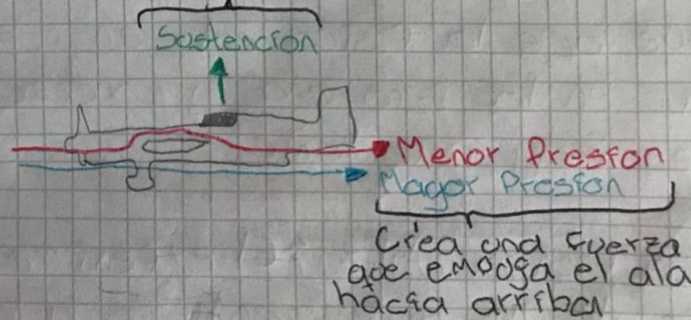 Sostención
Menor Presion
Mayor Presion
Crea una Fuerza
que empuga el ala
hacia arriba